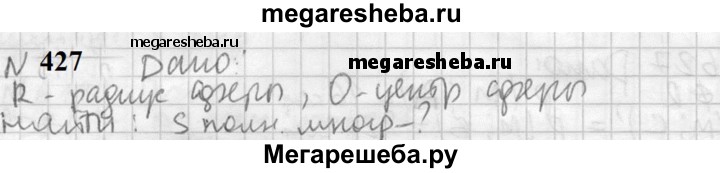 megaresheba.ru
megaresheba.ru
N 427 Дано: megaresheba.ru
R - радиус сферы, О - центр сферы
Найти: S полн. многр - ?
Мегарешеба.ру